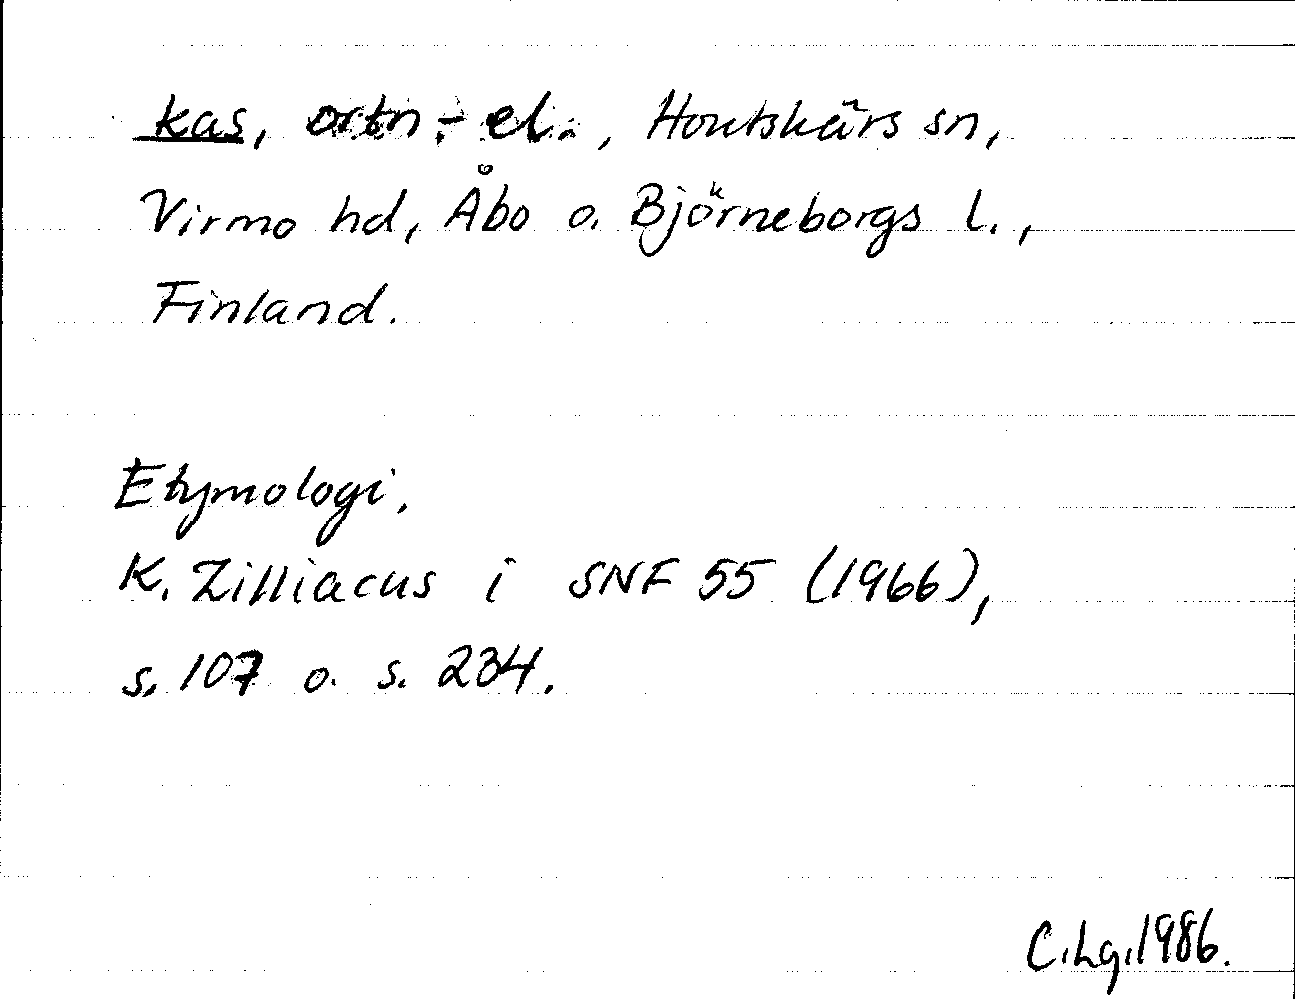 kas, ortn.-el., Houtskärs sn,
Virmo hd, Åbo o. Björneborgs l.,
Finland.
Etymologi.
K. Zilliacus i SNF 55 (1966),
s. 107 o. s. 234.
C.Lg.1986.